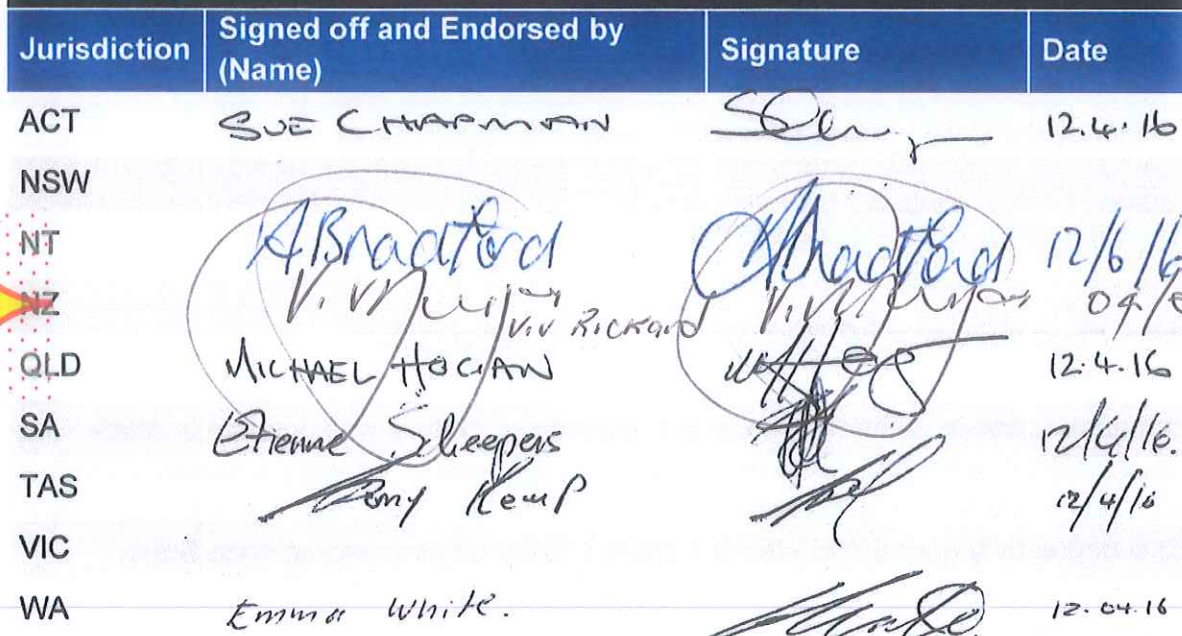 Jurisdiction Signed off and Endorsed by (Name) Signature Date
ACT SUE CHAPMAN 12.4.16
NSW
NT ABradford ABradford 12/6/16
NZ Viv RICKARD
QLD MICHAEL HOGAN 12.4.16
SA Etienne Scheepers 12/4/16.
TAS Tony Kemp 12/4/16
VIC
WA Emma White. 12.04.16